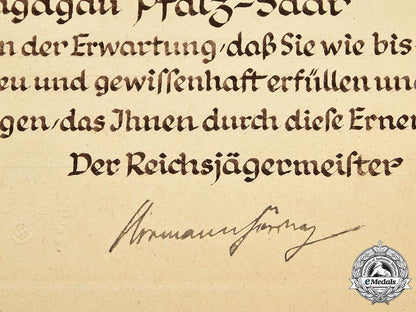 Jagdgau Pfalz-Saar
n der Erwartung, daß Sie wie bis
eu und gewissenhaft erfüllen und
gen, das Ihnen durch diese Ernen
Der Reichsjägermeister
Hermann Göring
eMedals